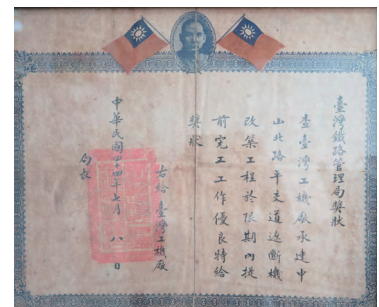 臺灣鐵路管理局獎狀
查臺灣工機廠承建中
山北路平交道遮斷機
改築工程於限期內提
前完工工作優良特給
獎狀
右給 臺灣工機廠
局長
中華民國四十四年七月 八 日